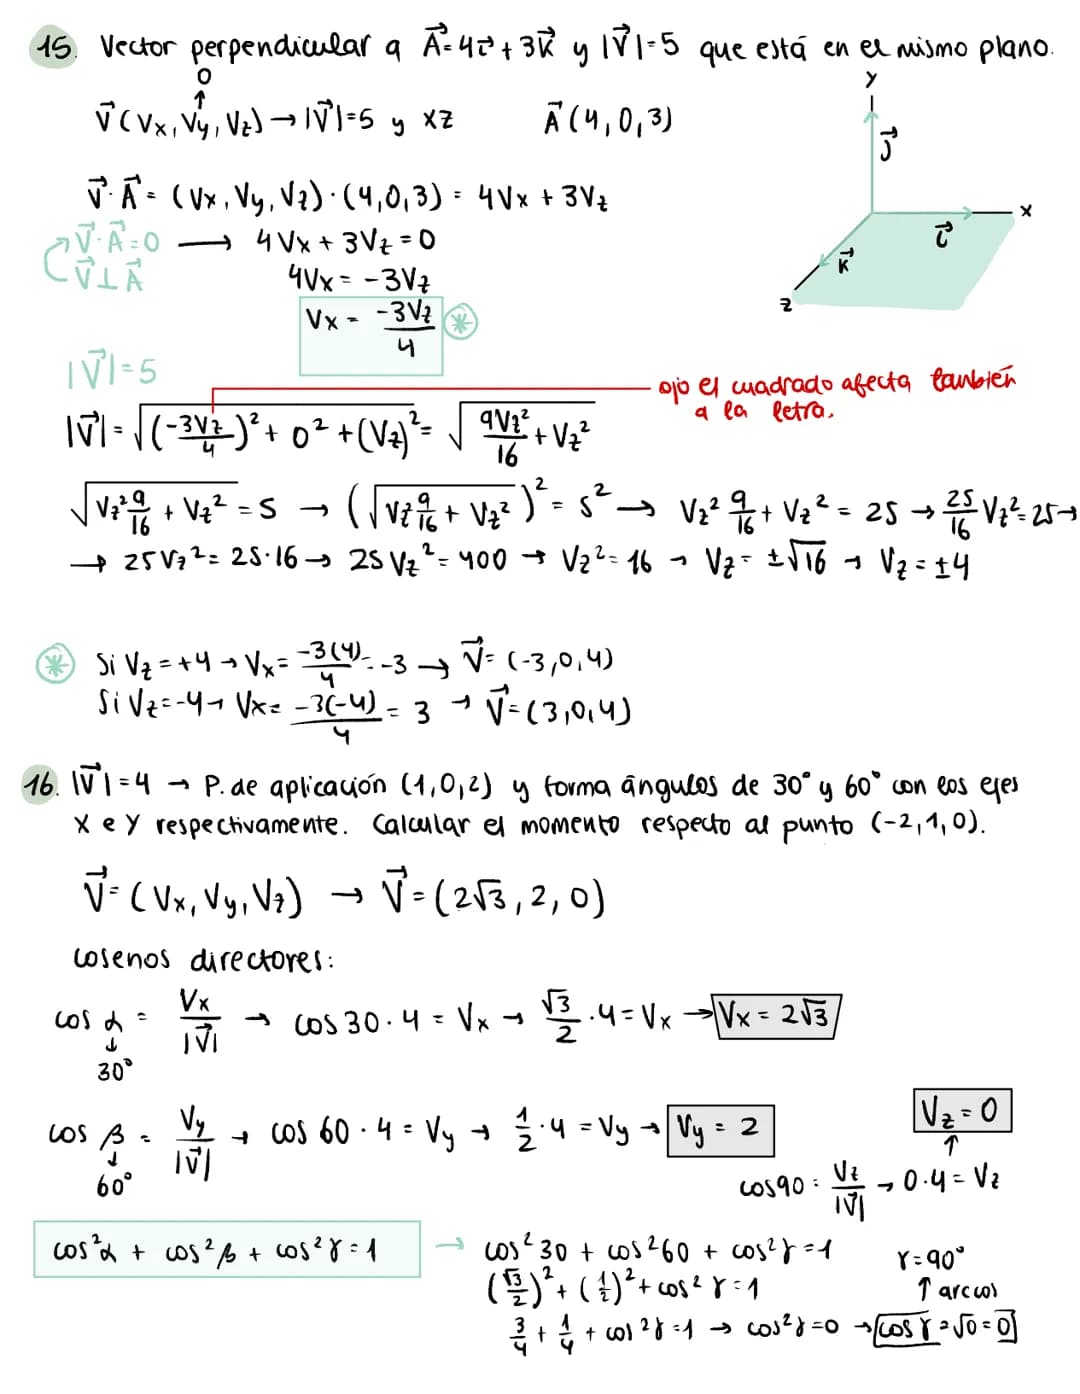 15. Vector perpendicular a A⃗=4i⃗+3K⃗ y |V⃗|=5 que está en el mismo plano.
0
↑
V⃗(Vx,Vy,Vz)→|V⃗|=5 y XZ A⃗(4,0,3)
Y
J⃗
X
i⃗
K⃗
Z
V⃗·A⃗=(Vx,Vy,Vz)·(4,0,3)=4Vx+3Vz
V⃗·A⃗=0 → 4Vx+3Vz=0
V⃗⊥A⃗ 4Vx=-3Vz
Vx=-3Vz/4 *
|V⃗|=5
ojo el cuadrado afecta también
a la letra.
|V⃗|=√((-3Vz/4)²+0²+(Vz)²)=√(9Vz²/16+Vz²)
√(Vz² 9/16+Vz²)=5 → (√(Vz² 9/16+Vz²))²=5² → Vz² 9/16+Vz²=25 → 25/16 Vz²=25 →
→ 25Vz²=25·16 → 25Vz²=400 → Vz²=16 → Vz=±√16 → Vz=±4
* Si Vz=+4 → Vx=-3(4)/4=-3 → V⃗=(-3,0,4)
Si Vz=-4 → Vx=-3(-4)/4=3 → V⃗=(3,0,4)
16. |V⃗|=4 → P. de aplicación (1,0,2) y forma ángulos de 30° y 60° con los ejes
X e Y respectivamente. Calcular el momento respecto al punto (-2,1,0).
V⃗=(Vx,Vy,Vz) → V⃗=(2√3,2,0)
cosenos directores:
cos α=Vx/|V⃗| → cos 30·4=Vx → √3/2·4=Vx → Vx=2√3
↓
30°
cos β=Vy/|V⃗| → cos 60·4=Vy → 1/2·4=Vy → Vy=2
↓
60°
Vz=0
↑
cos90=Vz/|V⃗| → 0·4=Vz
cos²α+cos²β+cos²γ=1 → cos²30+cos²60+cos²γ=1
(√3/2)²+(1/2)²+cos²γ=1
γ=90°
↑ arccos
3/4+1/4+cos²γ=1 → cos²γ=0 → cosγ=√0=0